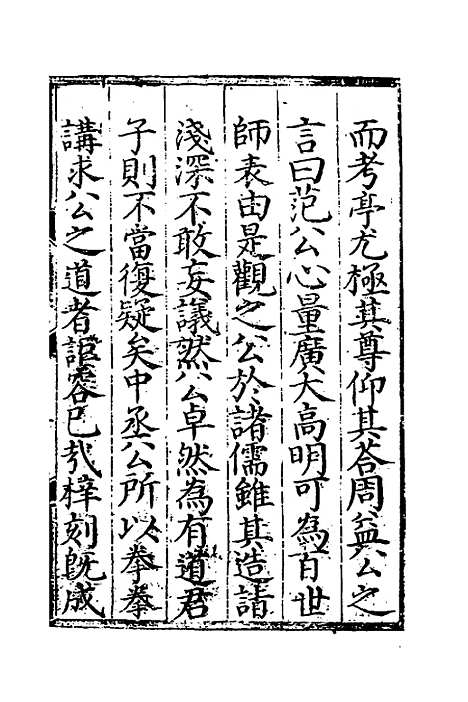 而考亭尤極其尊仰其荅周益公之
言曰范公心量廣大高明可為百世
師表由是觀之公於諸儒雖其造詣
淺深不敢妄議然公卓然為有道君
子則不當復疑矣中丞公所以拳拳
講求公之道者詎容已㢤梓刻既成